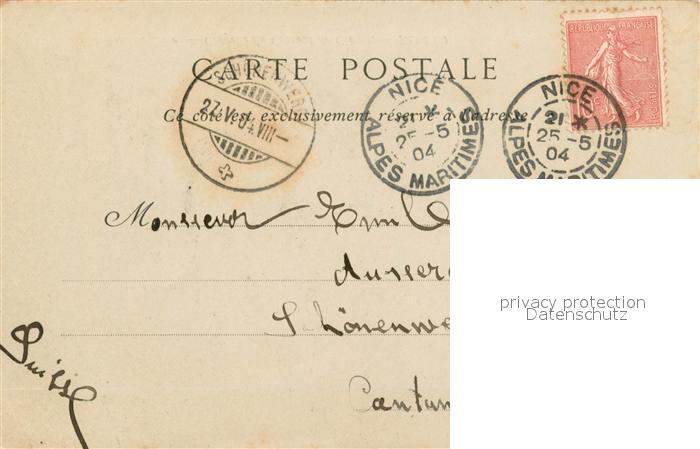 CARTE POSTALE
Ce côté est exclusivement réservé à l'adresse
REPUBLIQUE FRANÇAISE
POSTES
27.V.04.VIII—
NICE
25-5
04
ALPES MARITIMES
NICE
21 *
25-5
04
ALPES MARITIMES
Monsieur Emil
Ausser
Schönenwe
Suisse
Canton
privacy protection
Datenschutz